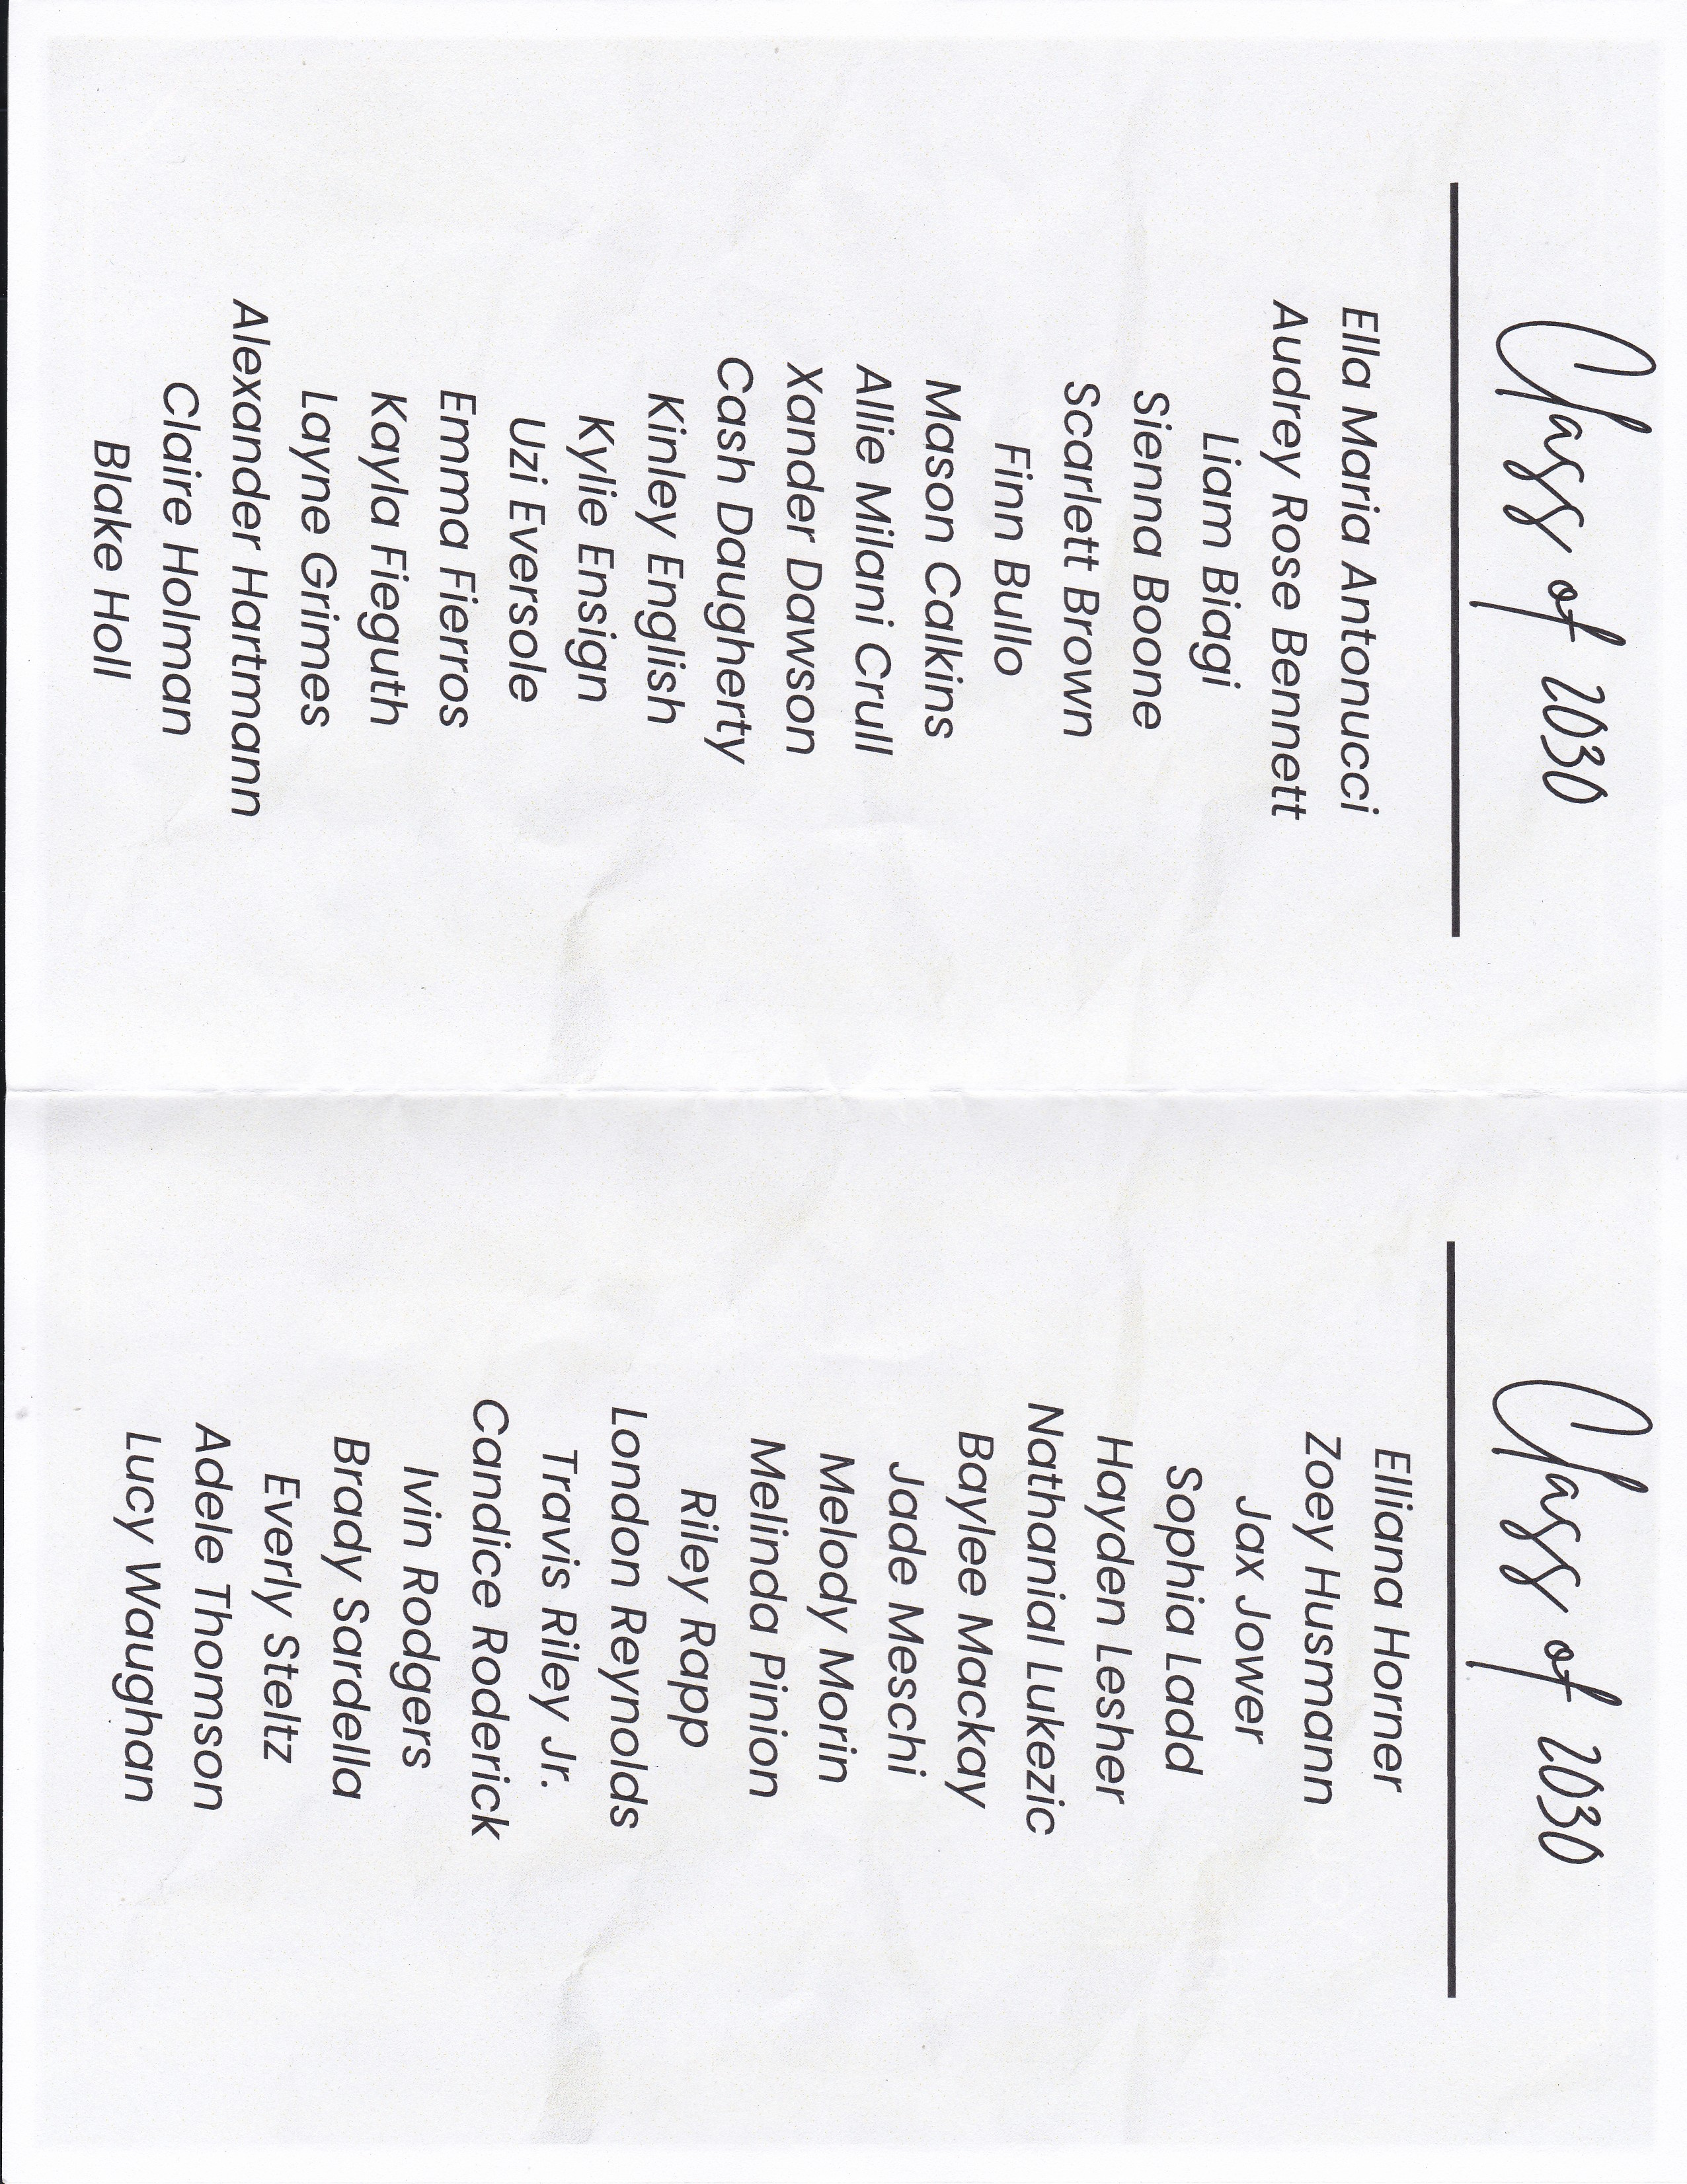 Class of 2030
Ella Maria Antonucci
Audrey Rose Bennett
Liam Biagi
Sienna Boone
Scarlett Brown
Finn Bullo
Mason Calkins
Allie Milani Crull
Xander Dawson
Cash Daugherty
Kinley English
Kylie Ensign
Uzi Eversole
Emma Fierros
Kayla Fieguth
Layne Grimes
Alexander Hartmann
Claire Holman
Blake Holl
Class of 2030
Elliana Horner
Zoey Husmann
Jax Jower
Sophia Ladd
Hayden Lesher
Nathanial Lukezic
Baylee Mackay
Jade Meschi
Melody Morin
Melinda Pinion
Riley Rapp
London Reynolds
Travis Riley Jr.
Candice Roderick
Ivin Rodgers
Brady Sardella
Everly Steltz
Adele Thomson
Lucy Waughan